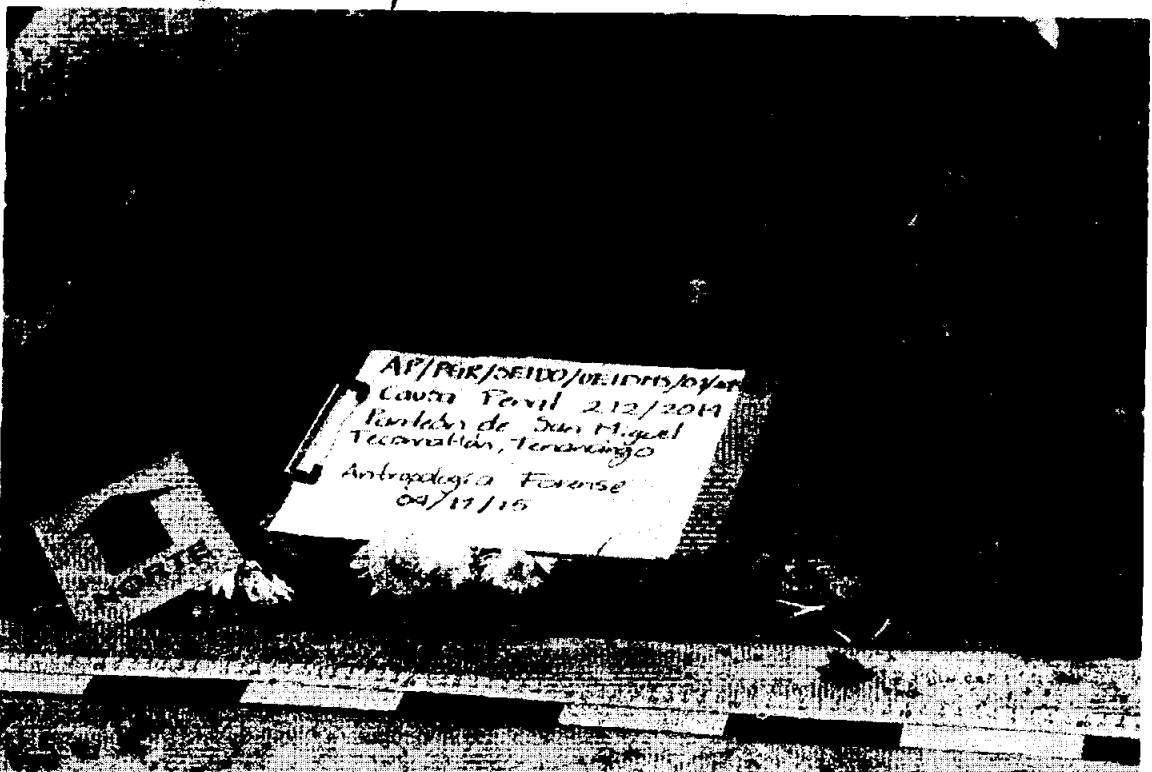 AP/PGR/SEIDO/UEIDMS/01/
Causa Penal 212/2014
Panteón de San Miguel
Tecomatlán, Tenancingo
Antropología Forense
04/11/15
NORTE